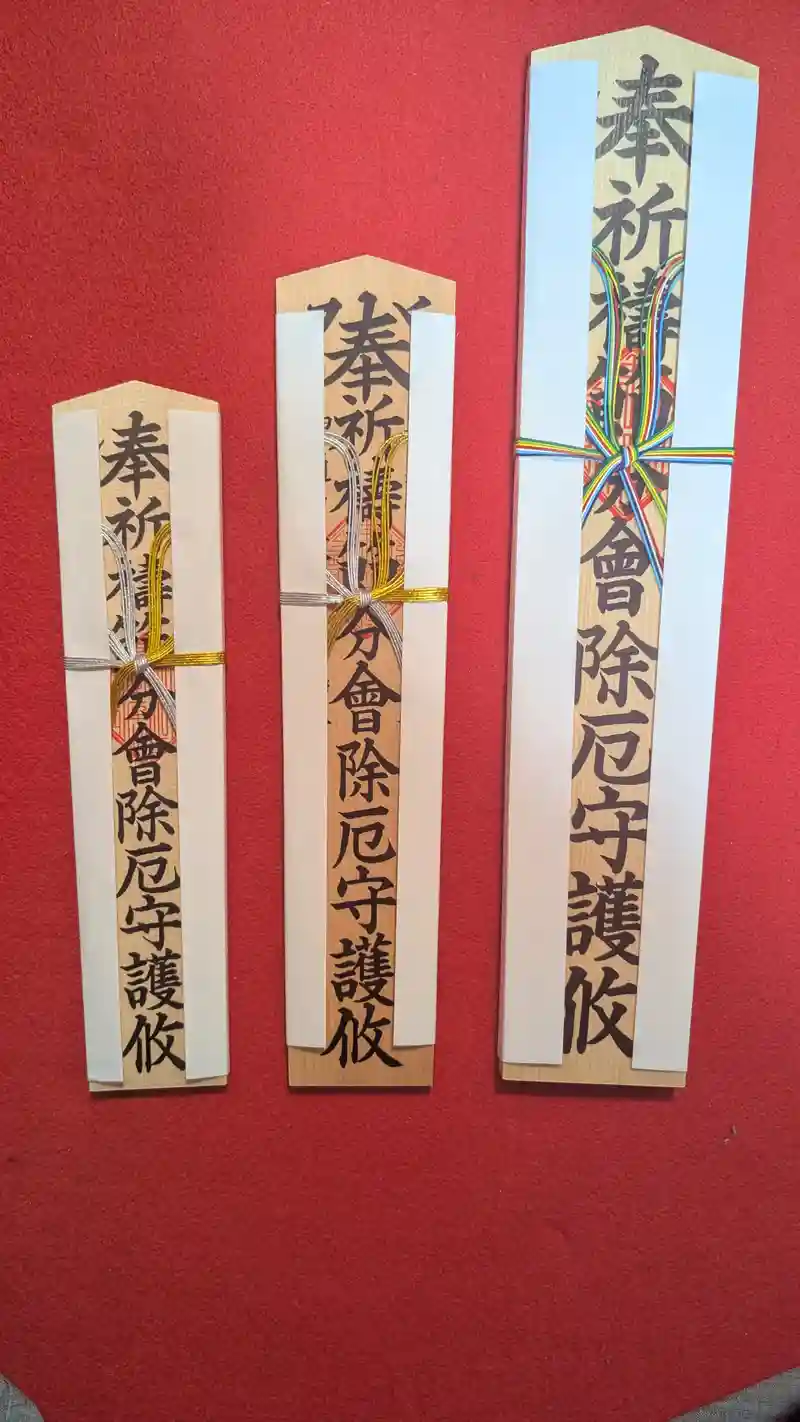 奉祈禱節分會除厄守護攸
奉祈禱節分會除厄守護攸
奉祈禱節分會除厄守護攸